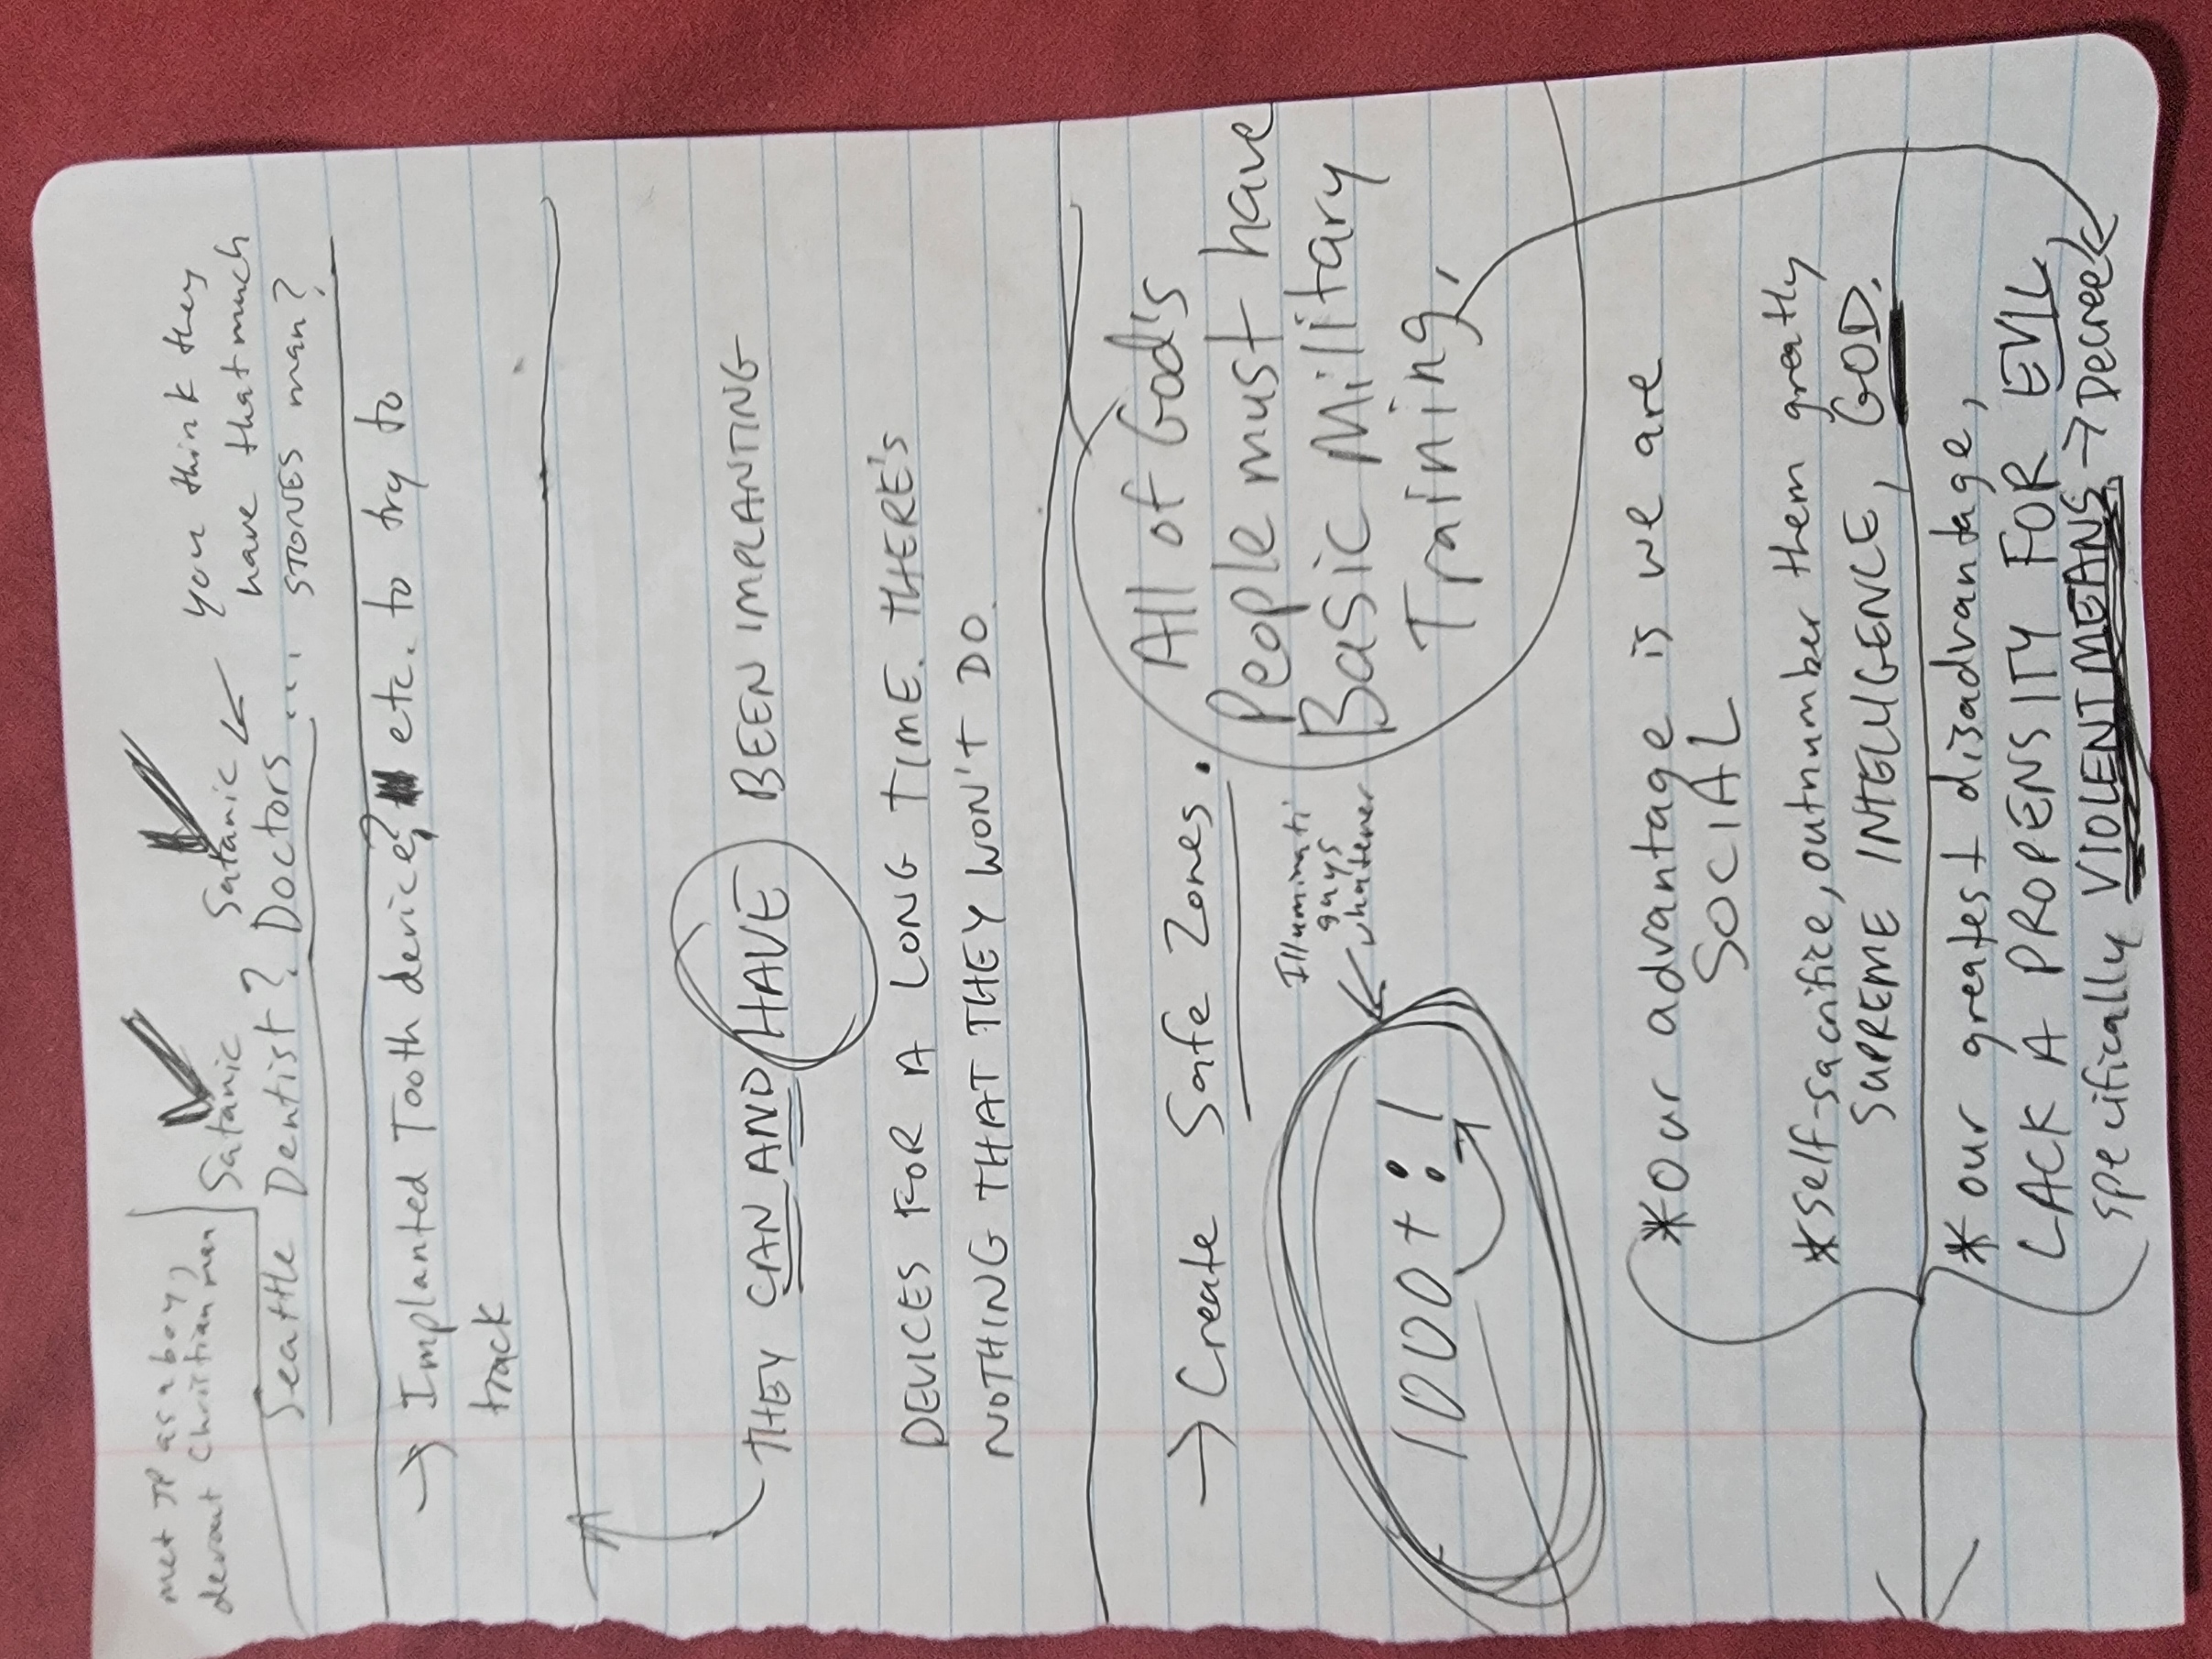 met JP as a boy,
devout Christian man
Satanic Satanic
Seattle Dentist? Doctors ...
you think they
have that much
STONES man?
→ Implanted Tooth device? etc. to try to
track
THEY CAN AND HAVE BEEN IMPLANTING
DEVICES FOR A LONG TIME. THERE'S
NOTHING THAT THEY WON'T DO.
→ Create Safe Zones.
All of God's
People must have
Basic Military
Training,
Illuminati
guys
whatever
1000+ : 1
*Our advantage is we are
SOCIAL
*Self-sacrifice, outnumber them greatly
SUPREME INTELLIGENCE, GOD.
*our greatest disadvantage,
LACK A PROPENSITY FOR EVIL,
specifically VIOLENT MEANS. → Decree